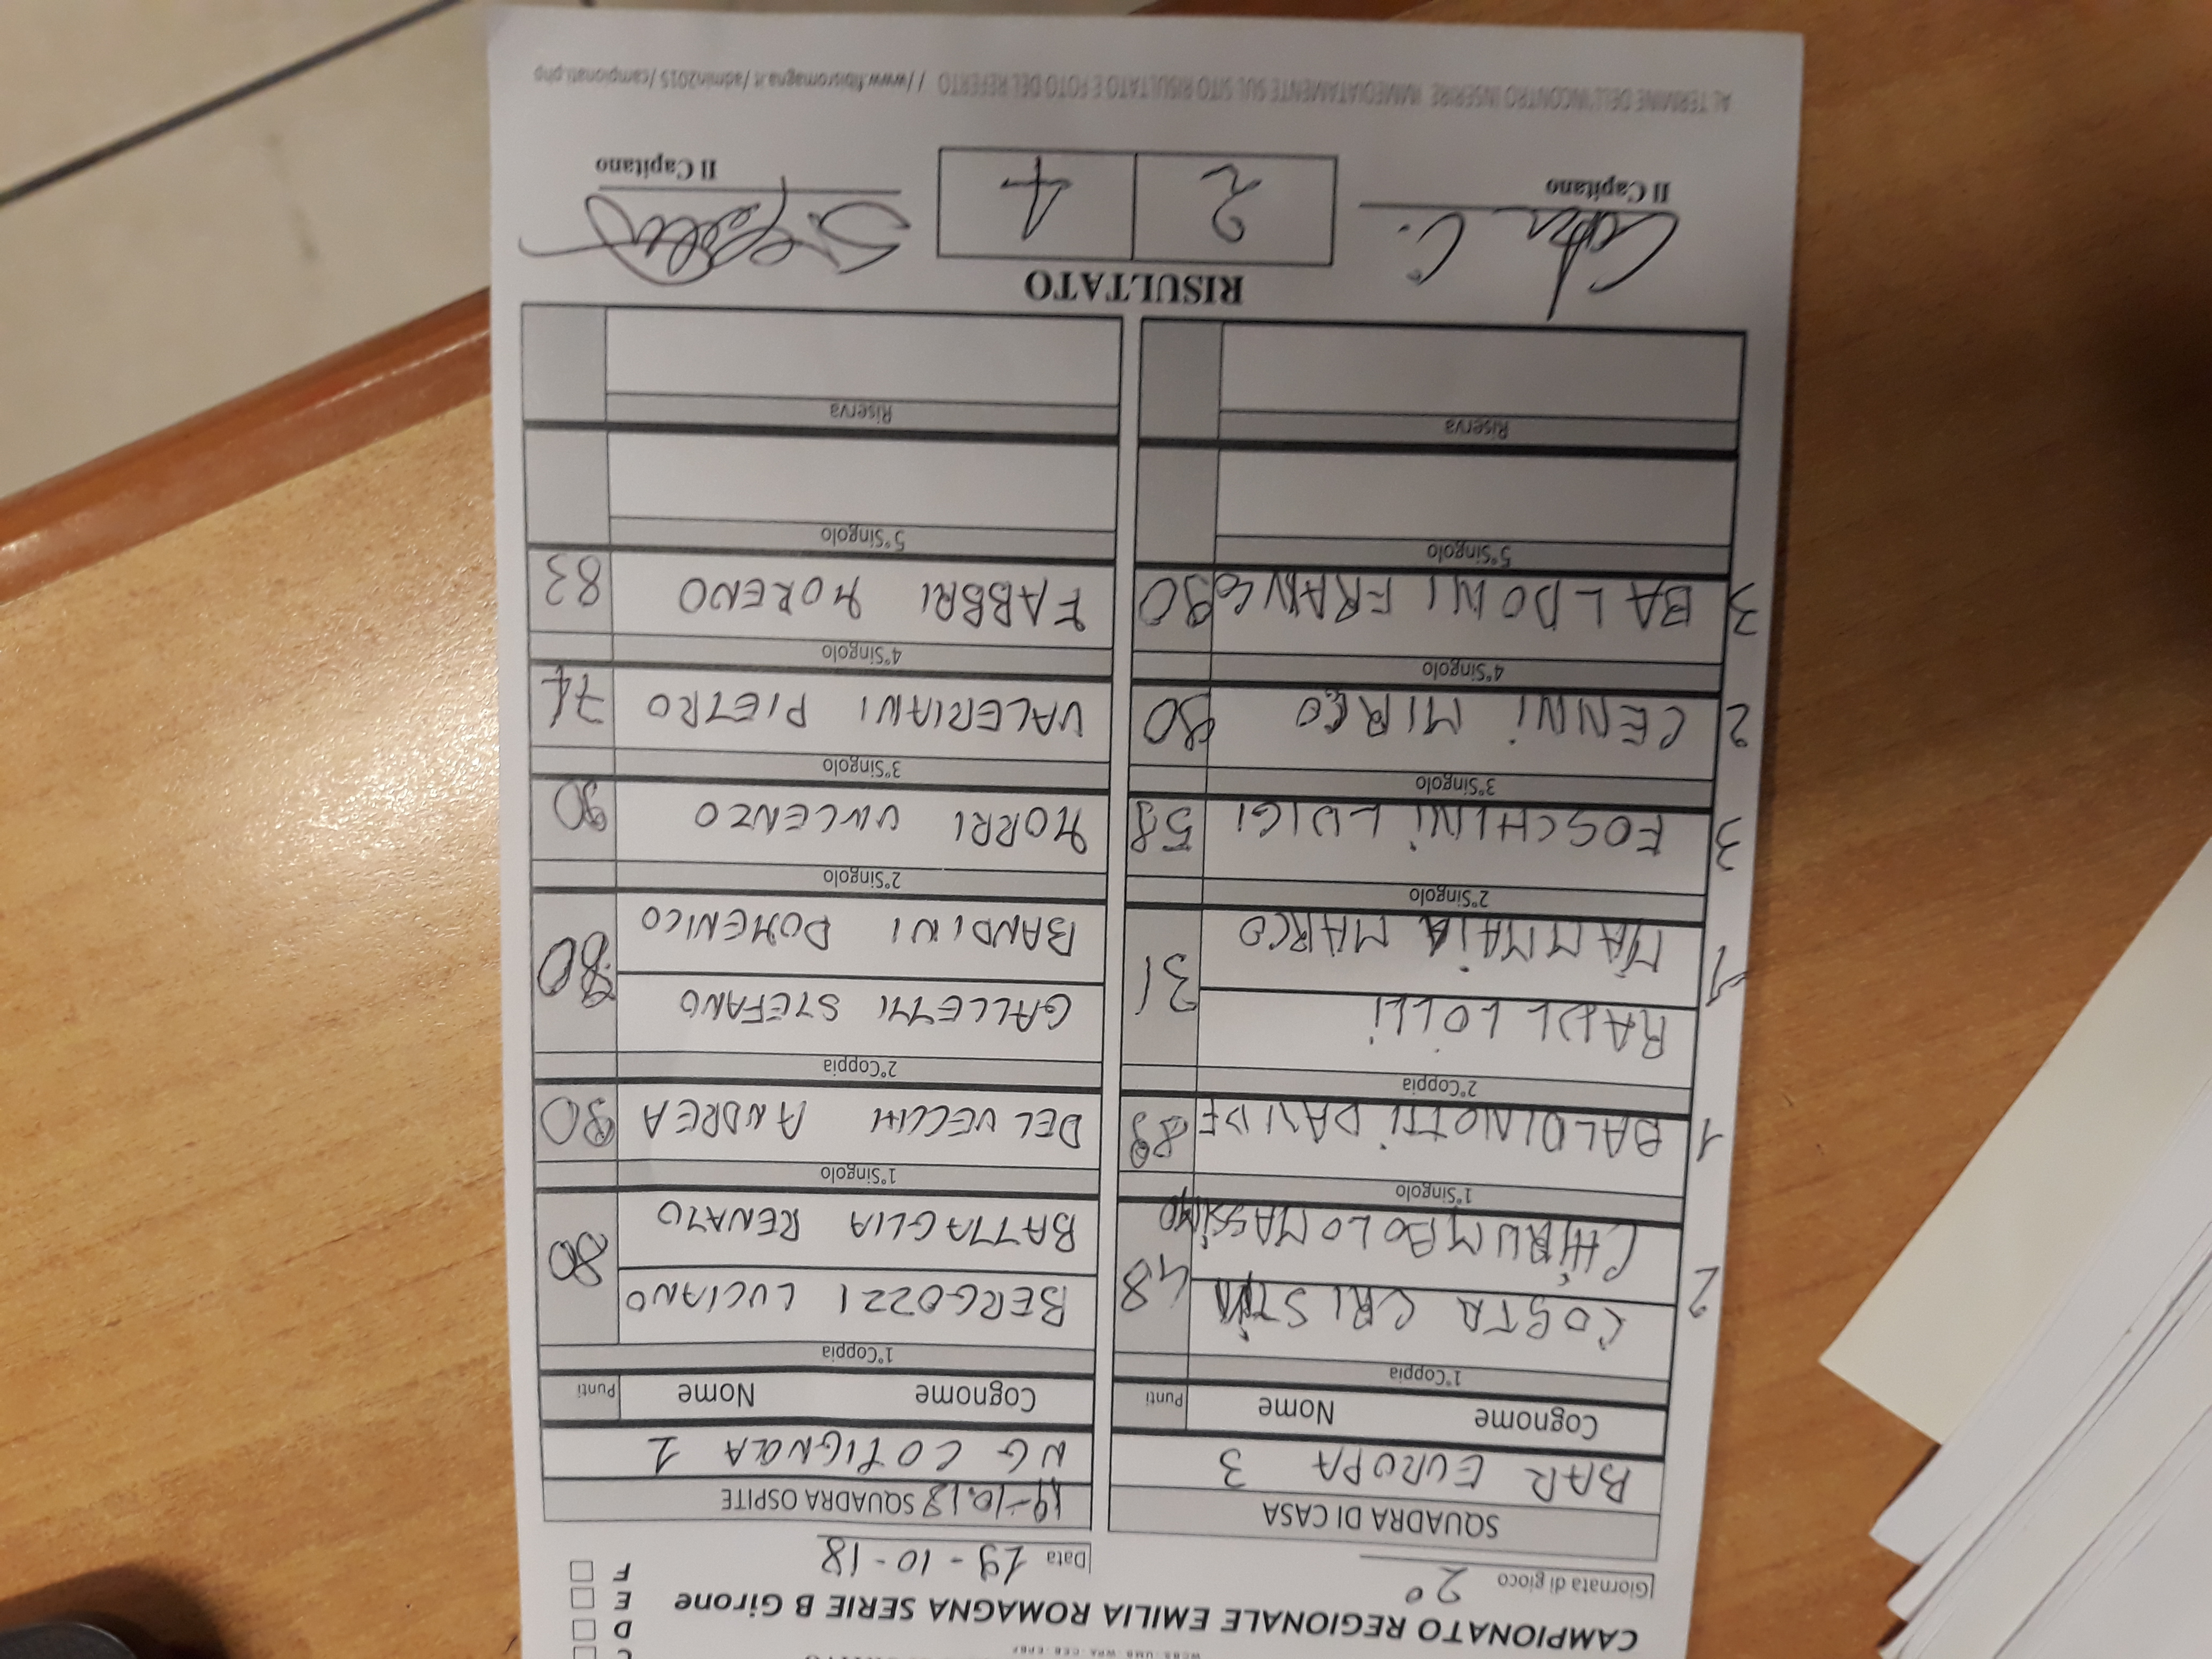 CAMPIONATO REGIONALE EMILIA ROMAGNA SERIE B Girone
D
E
F
Giornata di gioco 2°
Data 19-10-18
SQUADRA DI CASA
19-10.18 SQUADRA OSPITE
BAR EUROPA 3
NG COTIGNOLA 1
Cognome Nome Punti
Cognome Nome Punti
1°Coppia
1°Coppia
2 COSTA CRISTIAN 48
CHIRUMBOLO MASSIMO
BERGOZZI LUCIANO 80
BATTAGLIA RENATO
1°Singolo
1°Singolo
1 BALDINOTTI DAVIDE 89
DEL VECCHI ANDREA 90
2°Coppia
2°Coppia
RAUL LOLLI
1 MAMMAIA MARCO 31
GALLETTI STEFANO
BANDINI DOMENICO 80
2°Singolo
2°Singolo
3 FOSCHINI LUIGI 58
MORRI VINCENZO 90
3°Singolo
3°Singolo
2 CENNI MIRCO 90
VALERIANI PIETRO 74
4°Singolo
4°Singolo
3 BALDONI FRANCO 90
FABBRI MORENO 83
5°Singolo
5°Singolo
Riserva
Riserva
RISULTATO
2 4
Il Capitano
Il Capitano
AL TERMINE DELL'INCONTRO INSERIRE IMMEDIATAMENTE SUL SITO RISULTATO E FOTO DEL REFERTO //www.fibisromagna.it/admin2015/campionati.php